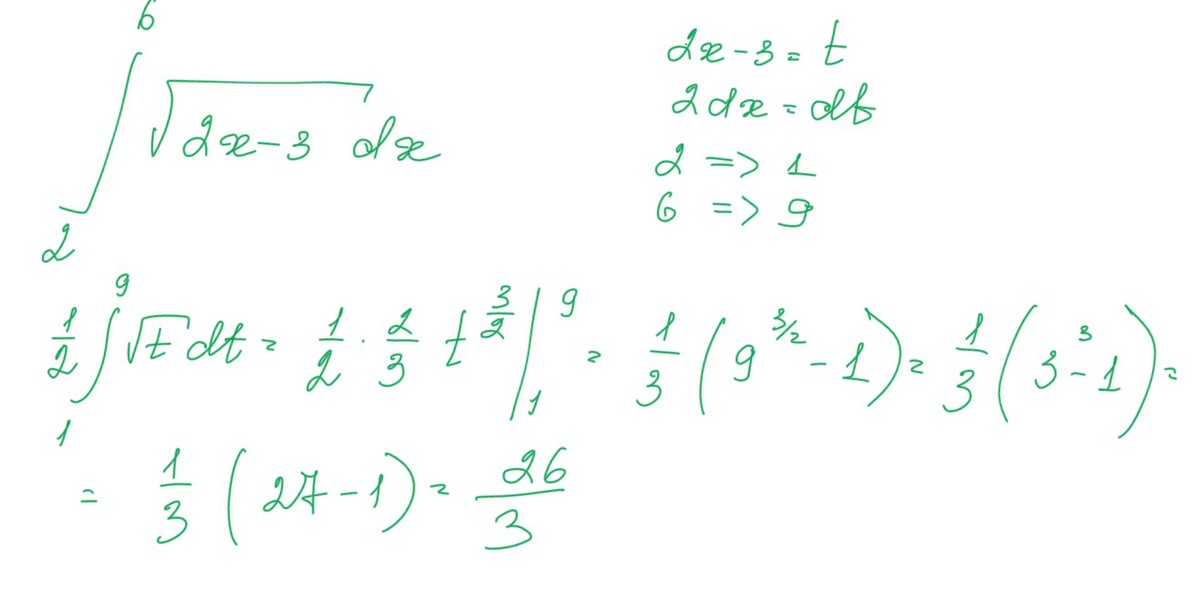 ∫_2^6 √(2x-3) dx
2x-3 = t
2dx = dt
2 => 1
6 => 9
1/2 ∫_1^9 √t dt = 1/2 · 2/3 t^(3/2) |_1^9 = 1/3 (9^(3/2) - 1) = 1/3 (3^3 - 1) =
= 1/3 (27 - 1) = 26/3